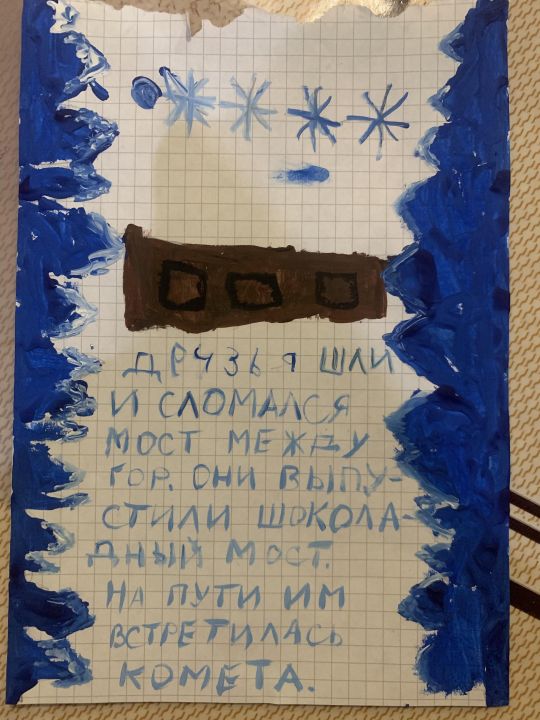 ДРУЗЬЯ ШЛИ
И СЛОМАЛСЯ
МОСТ МЕЖДУ
ГОР. ОНИ ВЫПУ-
СТИЛИ ШОКОЛА-
ДНЫЙ МОСТ.
НА ПУТИ ИМ
ВСТРЕТИЛАСЬ
КОМЕТА.